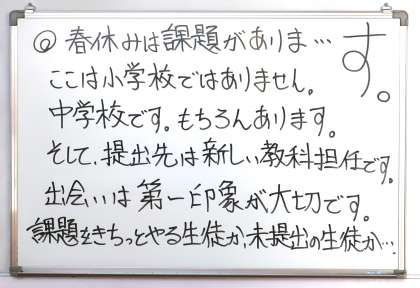 ◎ 春休みは課題がありま…す。
ここは小学校ではありません。
中学校です。もちろんあります。
そして、提出先は新しい教科担任です。
出会いは第一印象が大切です。
課題をきちっとやる生徒か、未提出の生徒か…